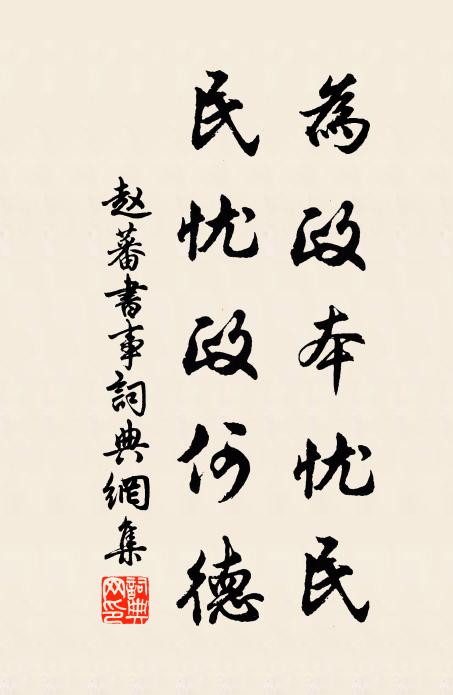 為政本忧民
民忧政何德
赵蕃書事詞典網集
詞典网印